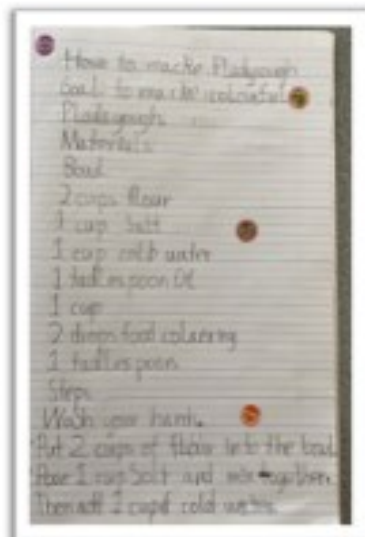 How to macke Pladyough
Goal to macke colourful
Pladeyough
Materials
Bowl
2 cups flour
1 cup Salt
1 cup cold water
1 tabl espoon Oil
1 cup
2 drops food colouring
1 tabl espoon
Steps
Wash your hank.
Put 2 cups of flour into the bowl
Poor 1 cup Salt and mix together.
Then add 1 cup of cold water